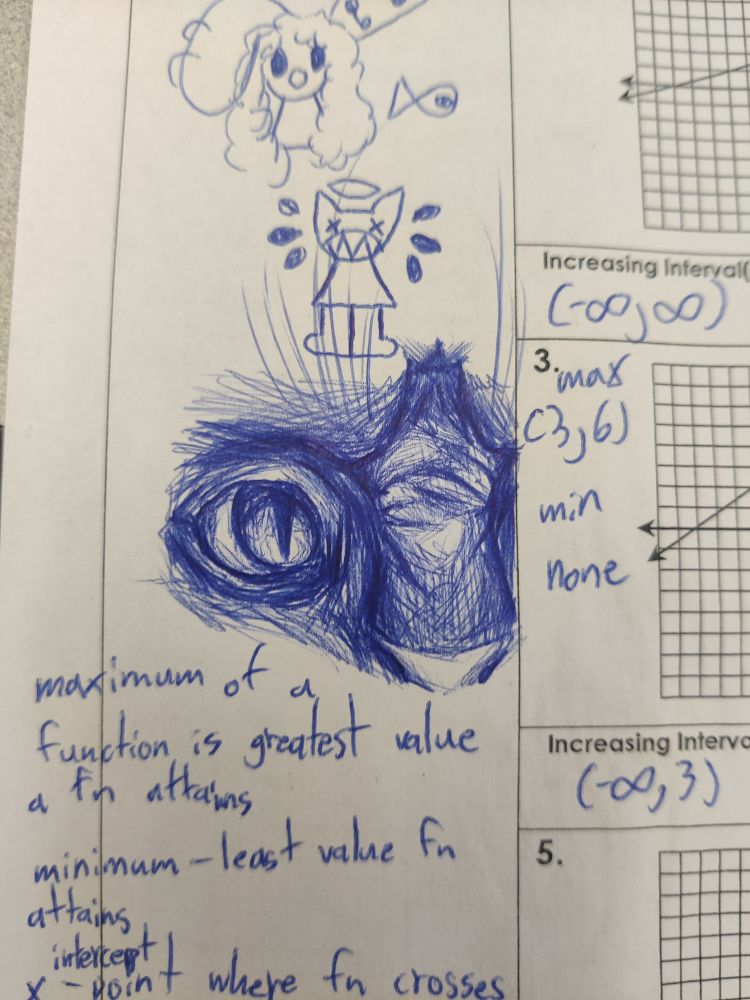 Increasing Interval(
(-∞, ∞)
3.
max
(3, 6)
min
none
Increasing Interva
(-∞, 3)
5.
maximum of a
function is greatest value
a fn attains
minimum - least value fn
attains
intercept
x - point where fn crosses